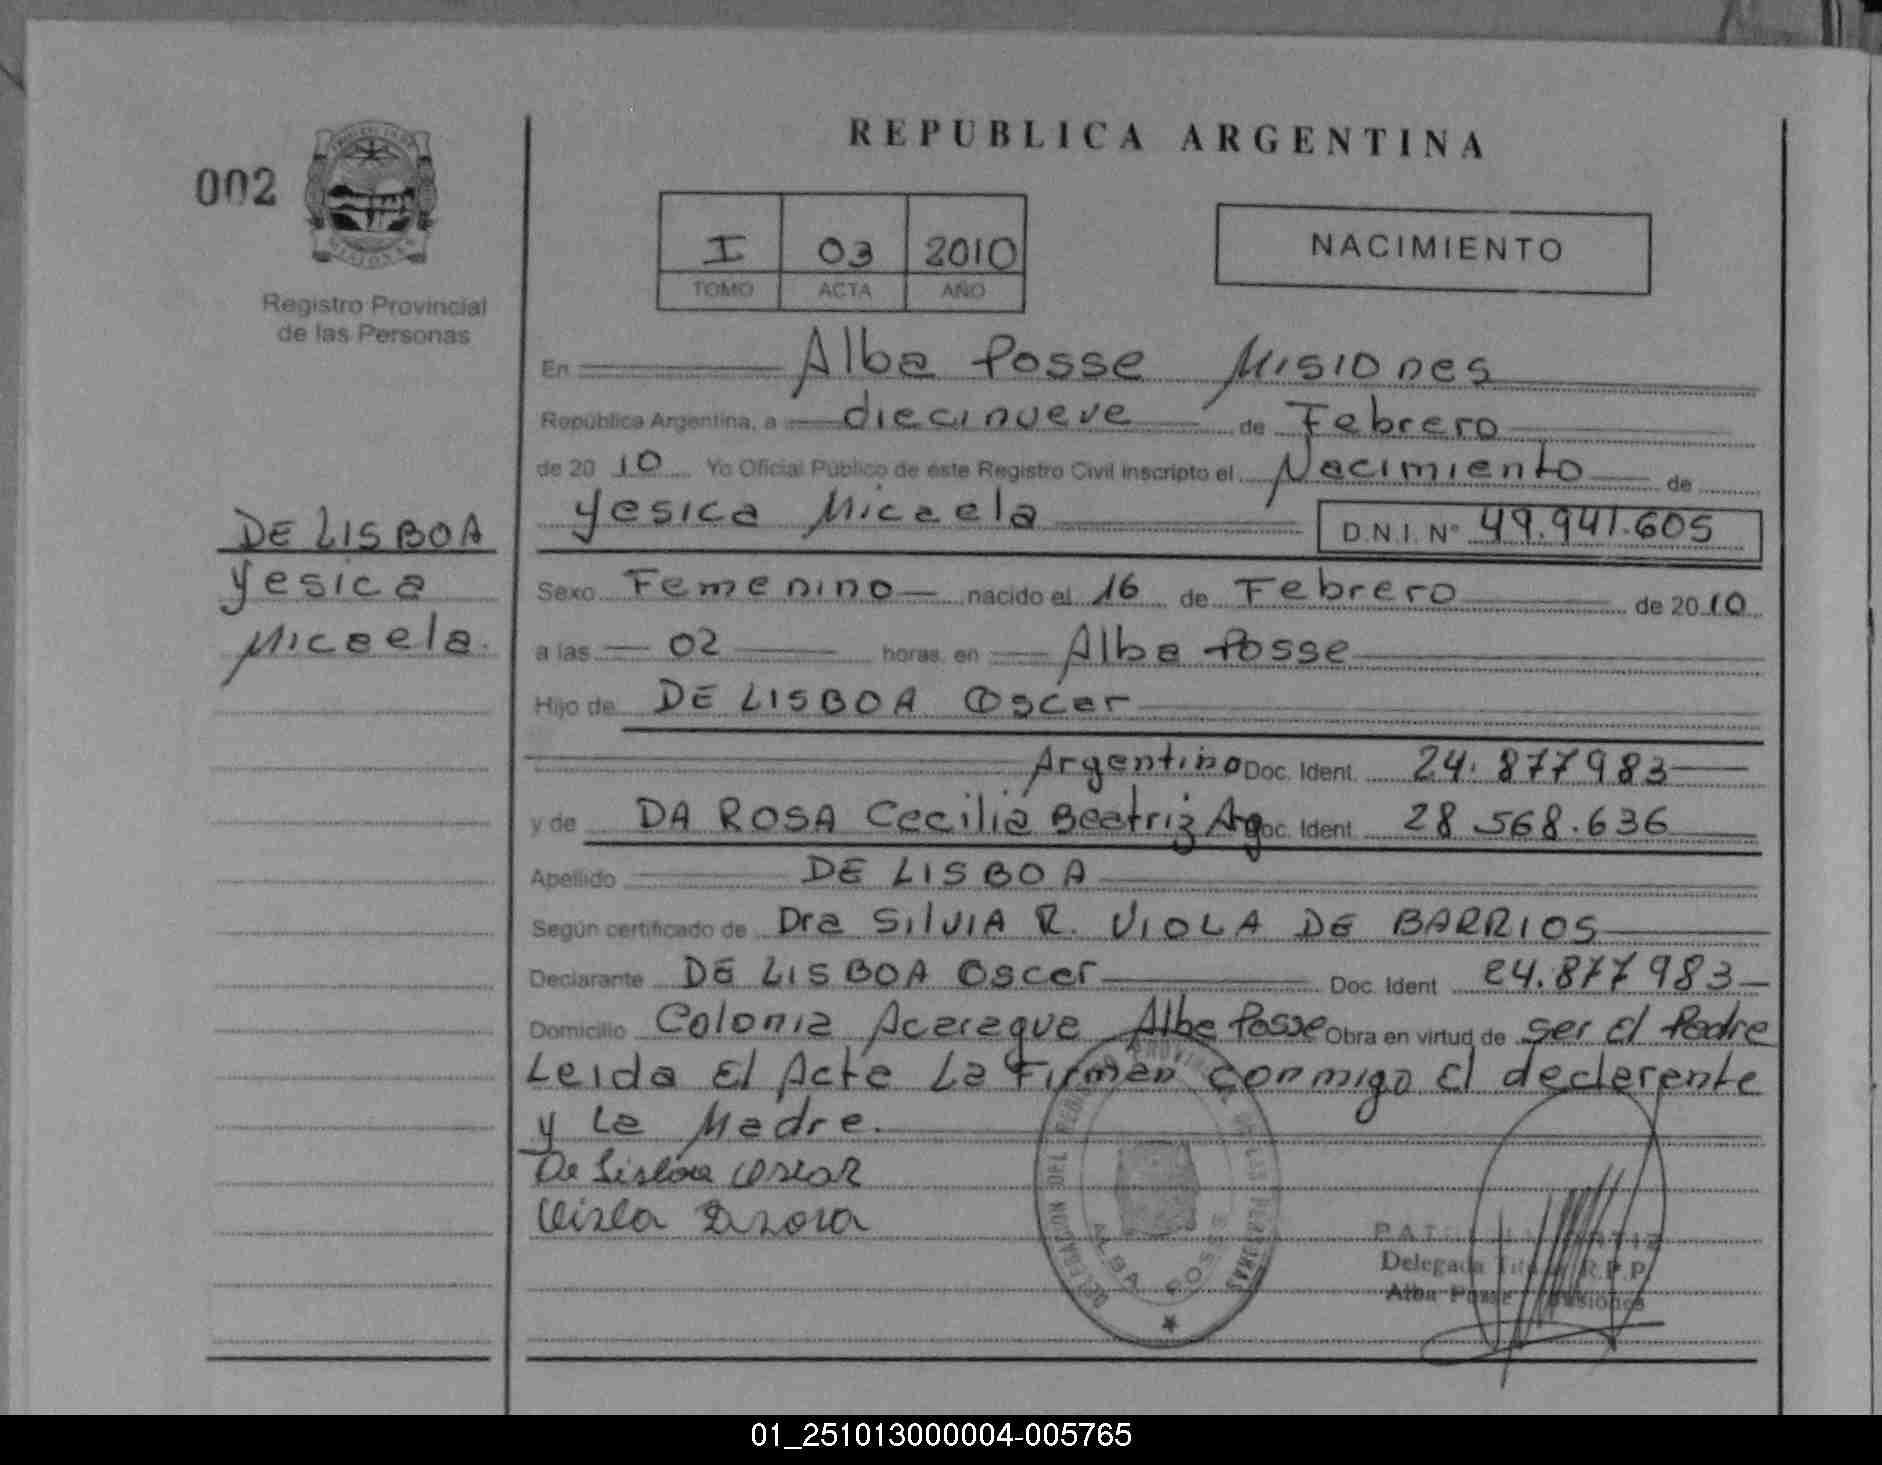 REPUBLICA ARGENTINA
002
Registro Provincial
de las Personas
I 03 2010
TOMO ACTA AÑO
NACIMIENTO
En Alba Posse Misiones
República Argentina, a diecinueve de Febrero
de 20 10 Yo Oficial Público de éste Registro Civil inscripto el Nacimiento de
Yesica Micaela D.N.I. Nº 49.941.605
DE LISBOA
Yesica
Micaela.
Sexo Femenino nacido el 16 de Febrero de 20 10
a las 02 horas, en Alba Posse
Hijo de DE LISBOA Oscar
Argentino Doc. Ident. 24.877983
y de DA ROSA Cecilia Beatriz Arg Doc. Ident. 28.568.636
Apellido DE LISBOA
Según certificado de Dra SILVIA R. VIOLA DE BARRIOS
Declarante DE LISBOA Oscar Doc. Ident 24.877983
Domicilio Colonia Acaragua Alba Posse Obra en virtud de ser el Padre
Leida El Acta La Firman conmigo el declarante
y La Madre.
De Lisboa Oscar
DELEGACION DEL REGISTRO PROVINCIAL DE LAS PERSONAS
ALBA POSSE
Delegada Titular R.P.P.
Alba Posse Misiones
01_251013000004-005765